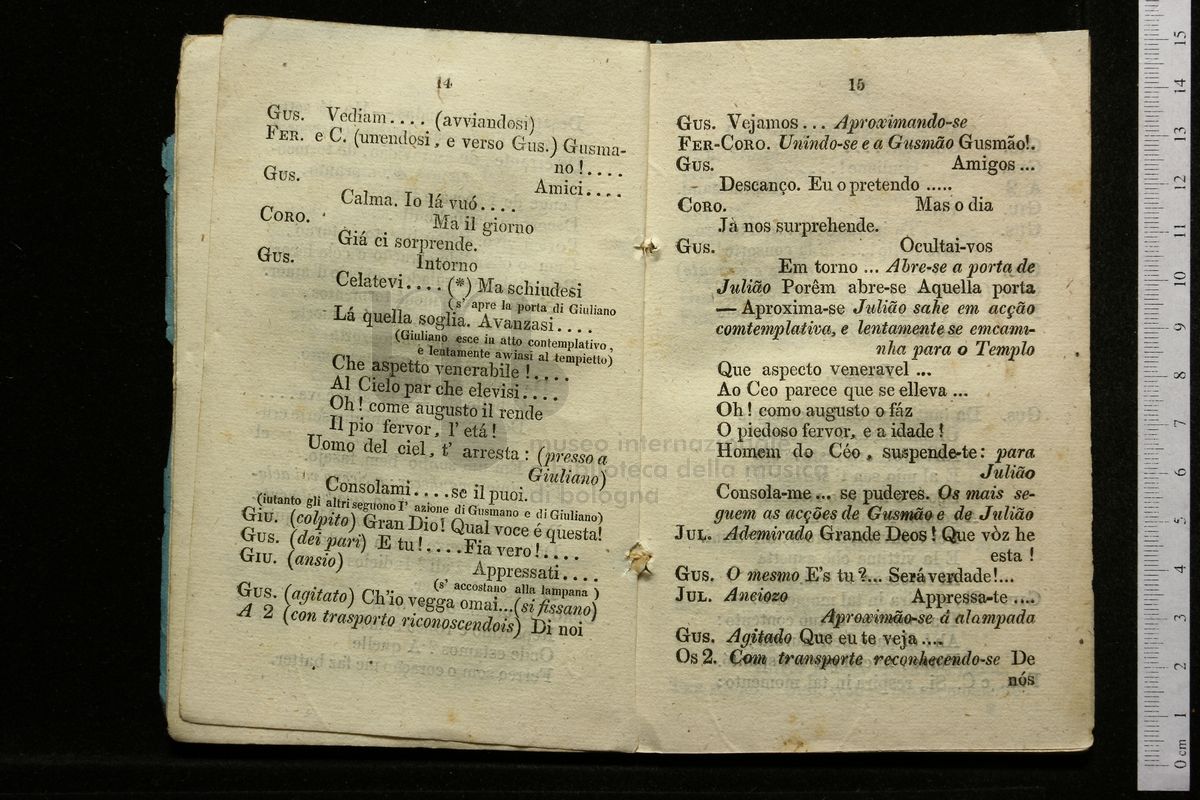 14
GUS. Vediam.... (avviandosi)
FER. e C. (unendosi, e verso GUS.) Gusma-
no!....
GUS. Amici....
Calma. Io lá vuó....
CORO. Ma il giorno
Giá ci sorprende.
GUS. Intorno
Celatevi.... (*) Ma schiudesi
(s' apre la porta di Giuliano
Lá quella soglia. Avanzasi....
(Giuliano esce in atto contemplativo,
e lentamente awiasi al tempietto)
Che aspetto venerabile!....
Al Cielo par che elevisi....
Oh! come augusto il rende
Il pio fervor, l' etá!
Uomo del ciel, t' arresta: (presso a
Giuliano)
Consolami....se il puoi.
(iutanto gli altri seguono l' azione di Gusmano e di Giuliano)
GIU. (colpito) Gran Dio! Qual voce é questa!
GUS. (dei pari) E tu!....Fia vero!....
GIU. (ansio) Appressati....
(s' accostano alla lampana)
GUS. (agitato) Ch'io vegga omai...(si fissano)
A 2 (con trasporto riconoscendois) Di noi
15
GUS. Vejamos... Aproximando-se
FER-CORO. Unindo-se e a Gusmão Gusmão!.
GUS. Amigos...
Descanço. Eu o pretendo .....
CORO. Mas o dia
Já nos surprehende.
GUS. Ocultai-vos
Em torno ... Abre-se a porta de
Julião Porêm abre-se Aquella porta
— Aproxima-se Julião sahe em acção
comtemplativa, e lentamente se emcami-
nha para o Templo
Que aspecto veneravel ...
Ao Ceo parece que se elleva ...
Oh! como augusto o fáz
O piedoso fervor, e a idade!
Homem do Céo, suspende-te: para
Julião
Consola-me... se puderes. Os mais se-
guem as acções de Gusmão e de Julião
JUL. Ademirado Grande Deos! Que vòz he
esta!
GUS. O mesmo E's tu?... Será verdade!...
JUL. Anciozo Appressa-te ....
Aproximão-se á alampada
GUS. Agitado Que eu te veja ....
Os 2. Com transporte reconhecendo-se De
nós
museo internazionale
biblioteca della musica
di bologna
0 cm 1 2 3 4 5 6 7 8 9 10 11 12 13 14 15